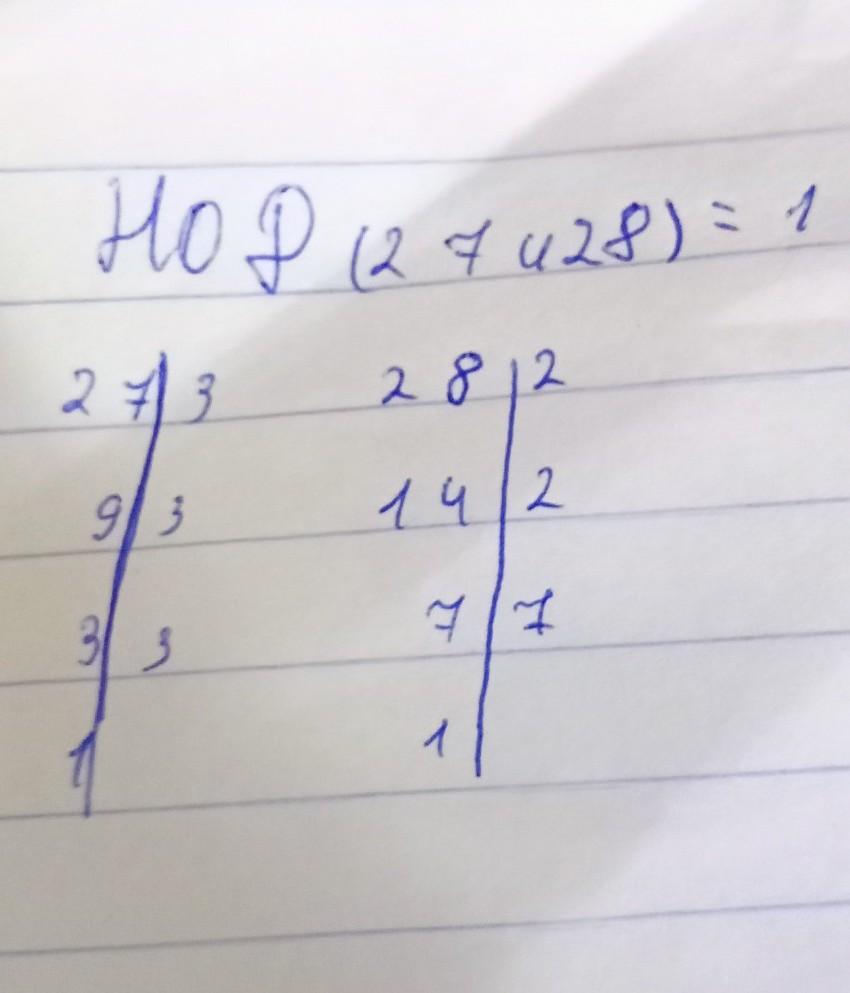 НОД (27 и 28) = 1
27 | 3 28 | 2
9 | 3 14 | 2
3 | 3 7 | 7
1 | 1 |